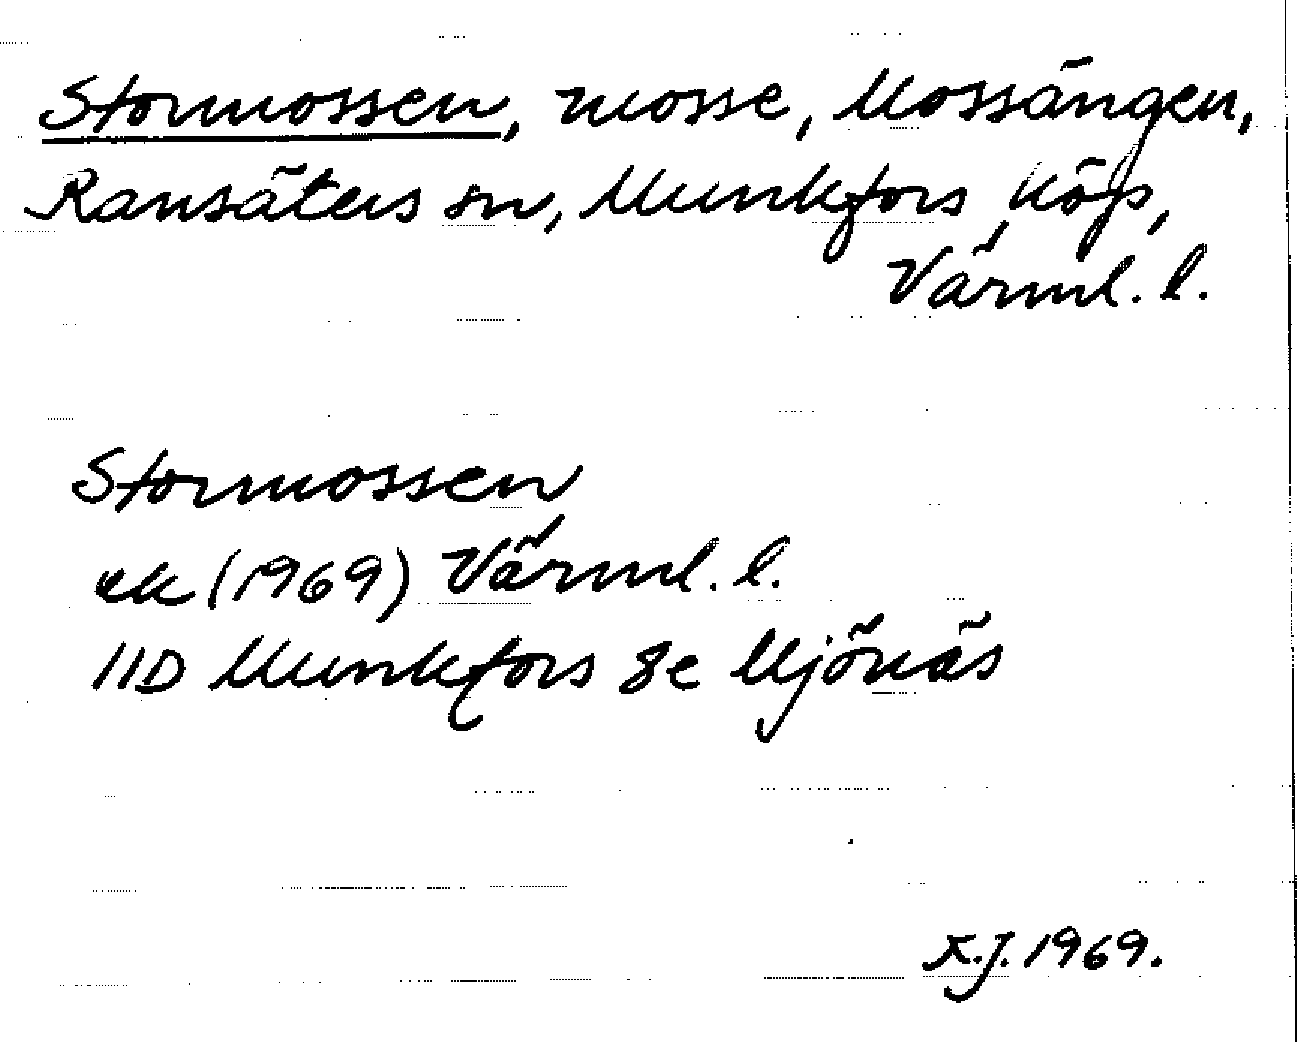 Stormossen, mosse, Mossängen,
Ransäters sn, Munkfors köp,
Värml. l.
Stormossen
ek (1969) Värml. l.
11D Munkfors 8e Mjönäs
K.J. 1969.